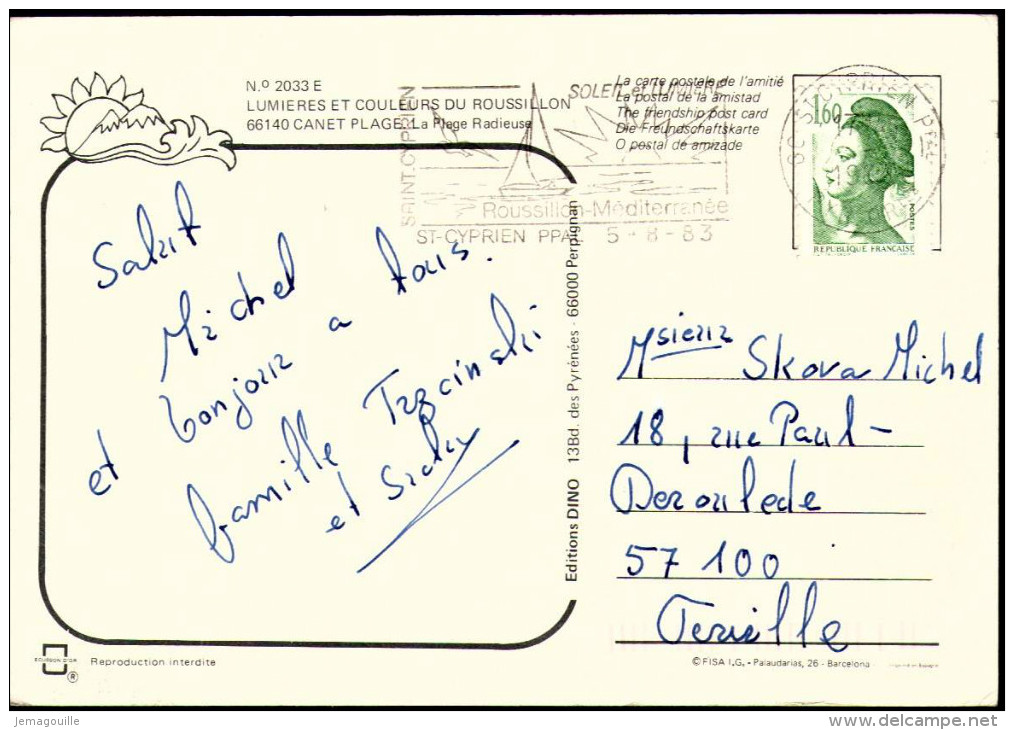 N.º 2033 E
LUMIERES ET COULEURS DU ROUSSILLON
66140 CANET PLAGE: La Plage Radieuse
La carte postale de l'amitié
La postal de la amistad
The friendship post card
Die Freundschaftskarte
O postal de amizade
SAINT.CYPRIEN
SOLEIL et LUMIERE
Roussillon-Méditerranée
ST-CYPRIEN PPAL 5-8-83
1,60
POSTES
REPUBLIQUE FRANÇAISE
Salut
Michel
et bonjour a tous.
famille Trzcinski
et
Editions DINO 13Bd. des Pyrénées - 66000 Perpignan
Msieur Skora Michel
18, rue Paul-
Deroulede
57 100
Terville
ECUSSON D'OR
®
Reproduction interdite
© FISA I.G. - Palaudarias, 26 - Barcelona
Jemagouille
www.delcampe.net